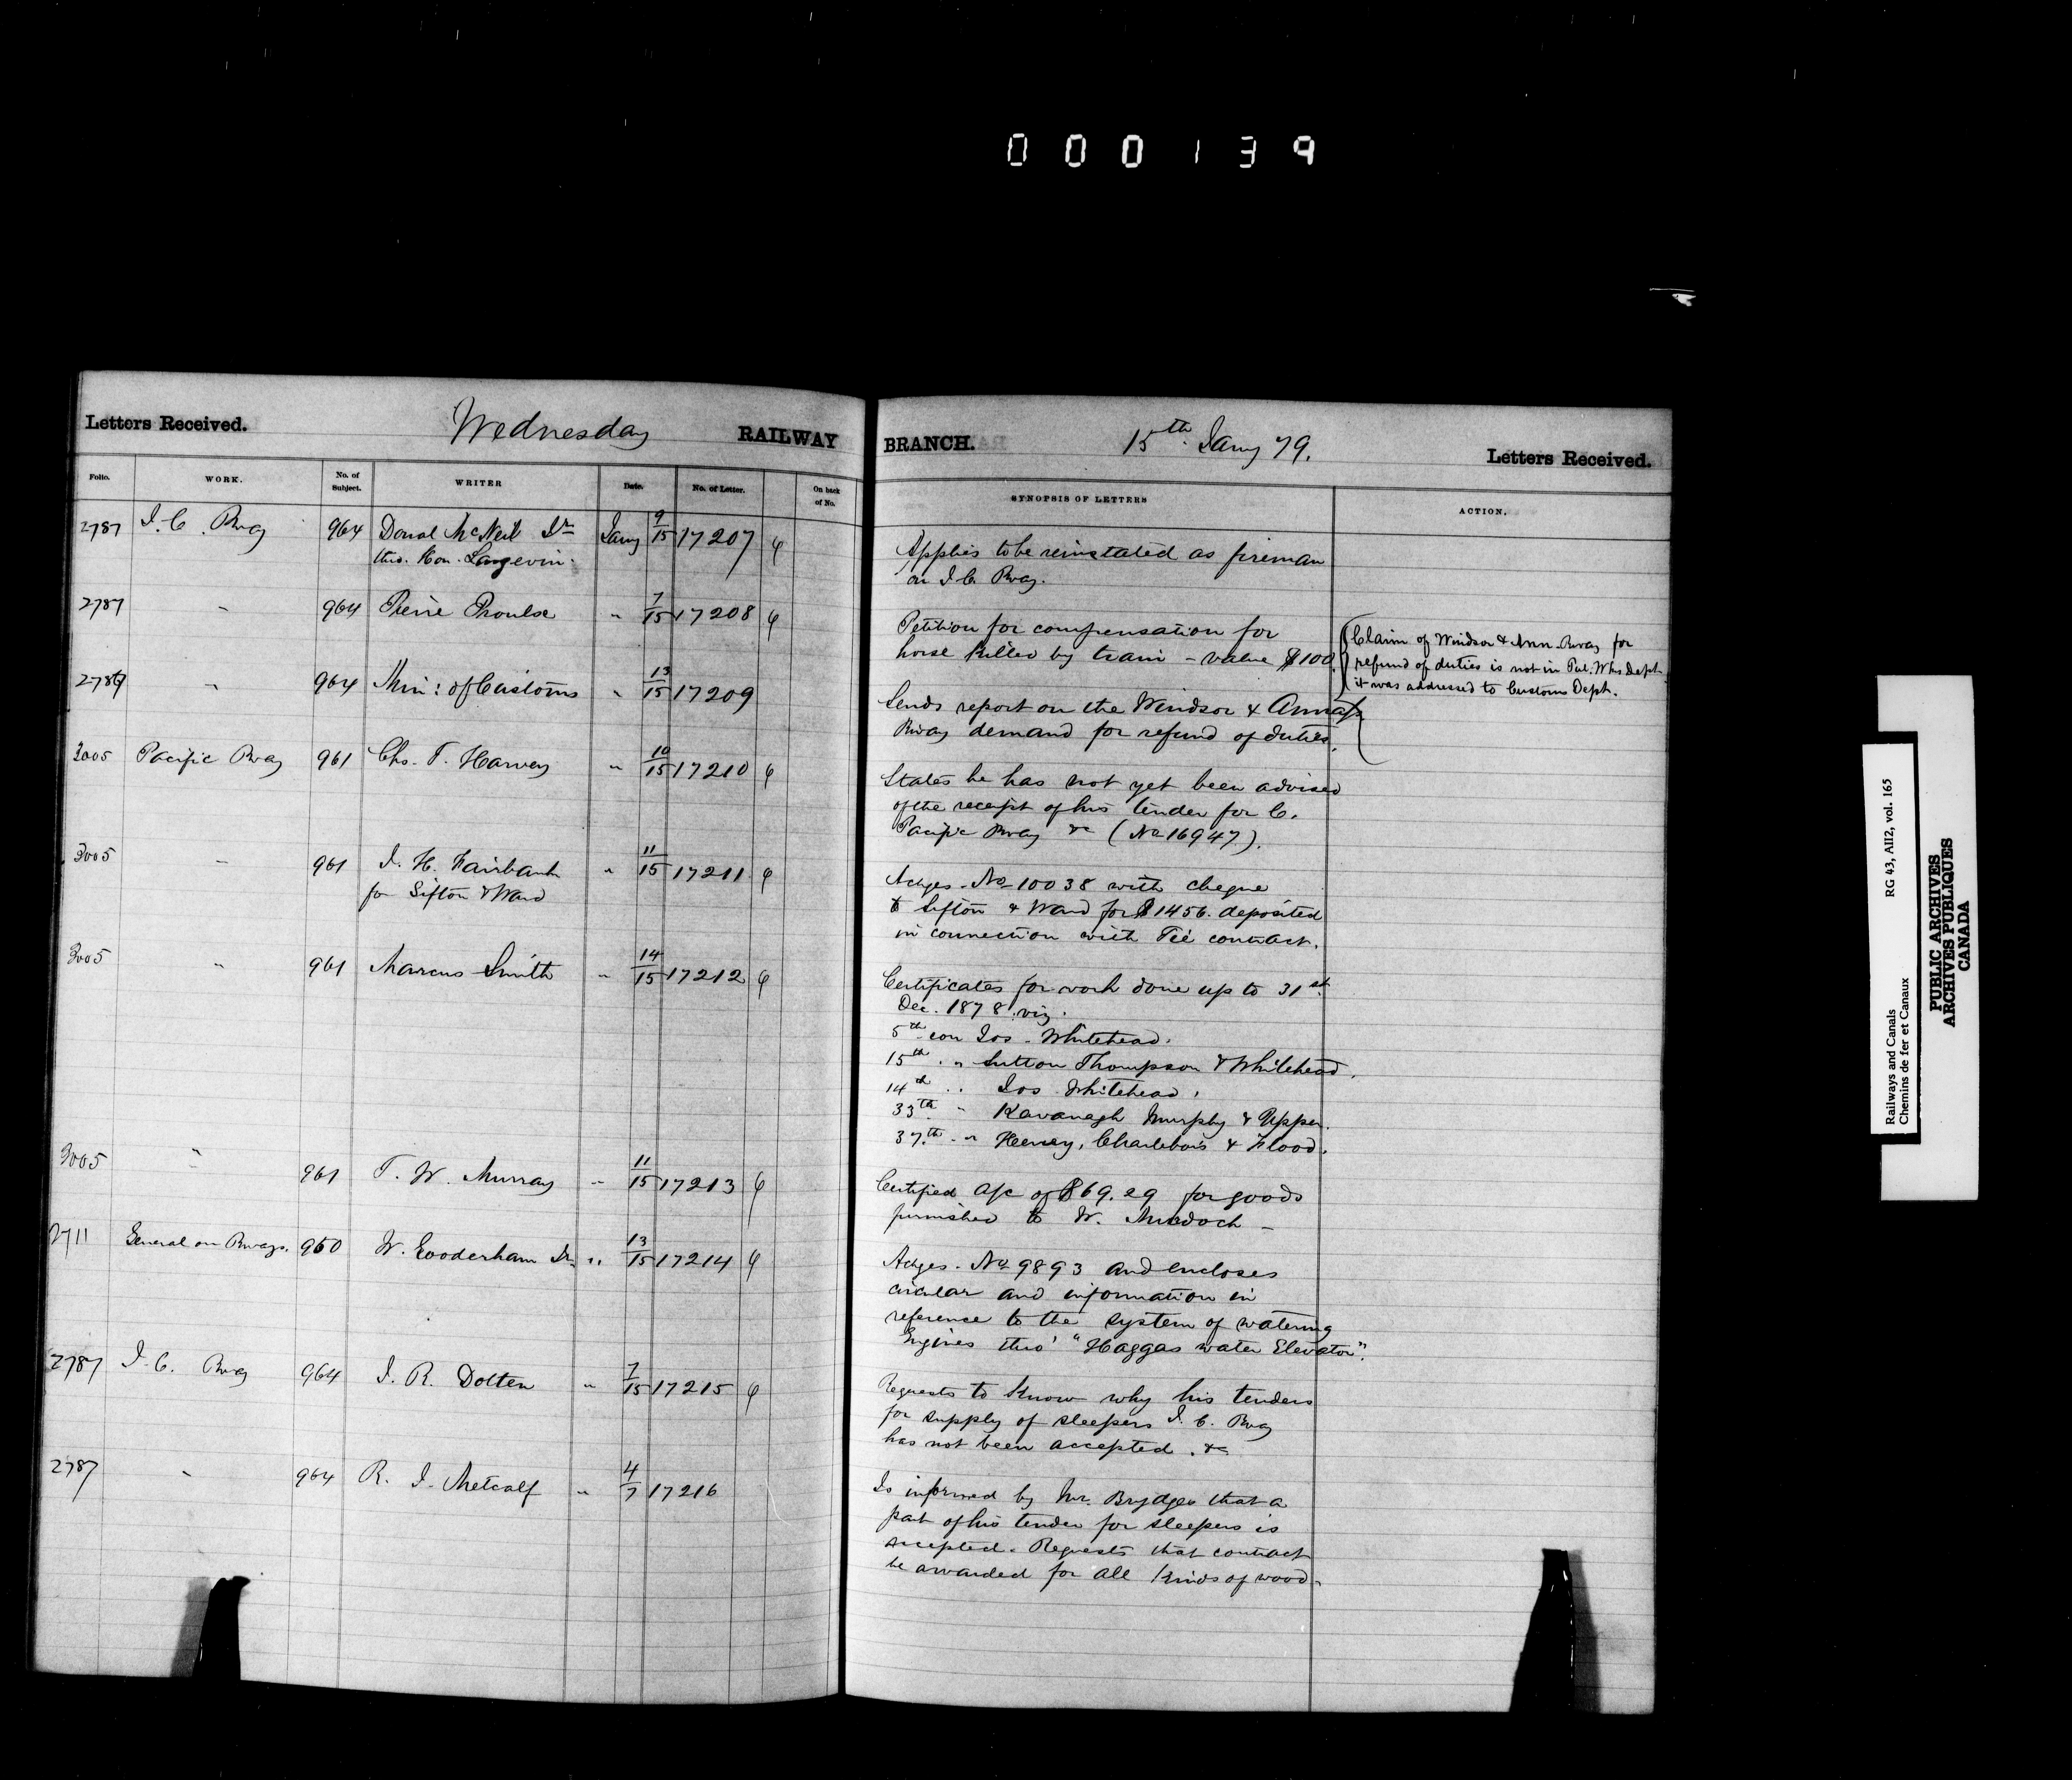 000139
Letters Received. Wednesday RAILWAY BRANCH. 15th Jany 79. Letters Received.
Folio. WORK. No. of Subject. WRITER Date. No. of Letter. On back of No. SYNOPSIS OF LETTERS ACTION.
2787 I. C. Rway 964 Donal McNeil Jr Jany 9/15 17207
thro. Hon. Langevin.
Applies to be reinstated as fireman
on I.C. Rway.
2787 " 964 Pierre Proulx " 7/15 17208
Petition for compensation for
horse killed by train - value $100.
2787 " 964 Min: of Customs " 13/15 17209
Sends report on the Windsor & Annap
Rway demand for refund of duties.
Claim of Windsor & Ann. Rway for
refund of duties is not in Pub. Wks Dept.
it was addressed to Customs Dept.
3005 Pacific Rway 961 Chs. T. Harvey " 10/15 17210
States he has not yet been advised
of the receipt of his tender for C.
Pacific Rway &c (No 16947).
3005 " 961 J. H. Fairbank " 11/15 17211
for Sifton & Ward
Ackges. No 10038 with cheque
to Sifton & Ward for $1456. deposited
in connection with Tie contract.
3005 " 961 Marcus Smith " 14/15 17212
Certificates for work done up to 31st
Dec. 1878. viz.
5th con Jos. Whitehead.
15th " Sutton Thompson & Whitehead.
14th " Jos. Whitehead.
33th " Kavanagh Murphy & Upper.
37th " Heney, Charlebois & Flood.
3005 " 961 T. W. Murray " 11/15 17213
Certified a/c of $69.29 for goods
furnished to W. Murdoch -
2711 General on Rways. 950 W. Gooderham Jr. " 13/15 17214
Ackges. No 9893 and encloses
circular and information in
reference to the system of watering
Engines thro' "Haggas water Elevator".
2787 I. C. Rway 964 J. R. Dolten " 7/15 17215
Requests to know why his tenders
for supply of sleepers I. C. Rway
has not been accepted. &c
2787 " 964 R. J. Metcalf " 4/7 17216
Is informed by Mr. Brydges that a
part of his tender for sleepers is
accepted. Requests that contract
be awarded for all kinds of wood.
Railways and Canals RG 43, AII2, vol. 165
Chemins de fer et Canaux
PUBLIC ARCHIVES
ARCHIVES PUBLIQUES
CANADA